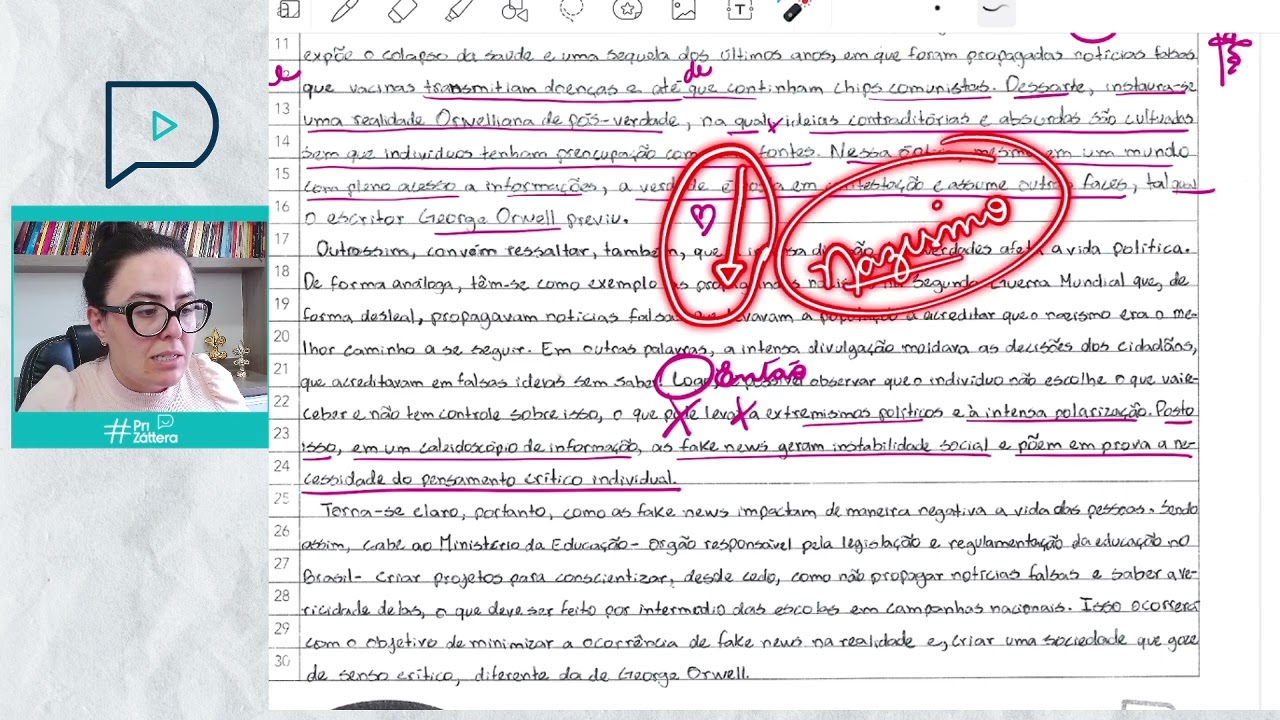 11 expõe o colapso da saúde e uma sequela dos últimos anos, em que foram propagadas notícias falsas
de
12 que vacinas transmitiam doenças e até que continham chips comunistas. Dessarte, instaura-se
13 uma realidade Orwelliana de pós-verdade, na qual, ideias contraditórias e absurdas são cultuadas
14 sem que indivíduos tenham preocupação com fontes. Nessa mesmo em um mundo
15 com pleno acesso a informações, a em e assume outras faces, tal qual
16 o escritor George Orwell previu.
17 Outrossim, convém ressaltar, também, que a vida política.
Nazismo
18 De forma análoga, têm-se como exemplo as Segunda Guerra Mundial que, de
19 forma desleal, propagavam notícias falsas a acreditar que o nazismo era o me-
20 lhor caminho a se seguir. Em outras palavras, a intensa divulgação moldava as decisões dos cidadãos,
Então
21 que acreditavam em falsas ideias sem saber. Logo observar que o indivíduo não escolhe o que vai re-
22 ceber e não tem controle sobre isso, o que pode levar a extremismos políticos e à intensa polarização. Posto
23 isso, em um caleidoscópio de informação, as fake news geram instabilidade social e põem em prova a ne-
24 cessidade do pensamento crítico individual.
25 Torna-se claro, portanto, como as fake news impactam de maneira negativa a vida das pessoas. Sendo
26 assim, cabe ao Ministério da Educação- órgão responsável pela legislação e regulamentação da educação no
27 Brasil- criar projetos para conscientizar, desde cedo, como não propagar notícias falsas e saber a ve-
28 ricidade delas, o que deve ser feito por intermédio das escolas em campanhas nacionais. Isso ocorrerá
29 com o objetivo de minimizar a ocorrência de fake news na realidade e, criar uma sociedade que goze
30 de senso crítico, diferente da de George Orwell.
#Pri Záttera